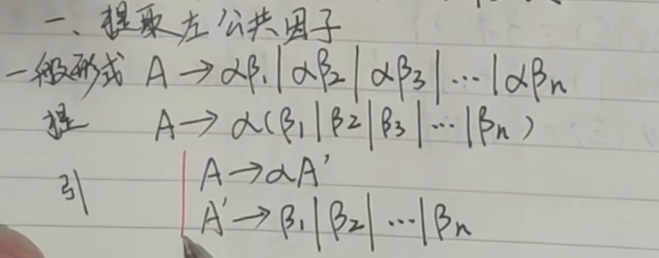 一、提取左公共因子
一般形式 A → αβ₁ | αβ₂ | αβ₃ | ⋯ | αβₙ
提 A → α(β₁ | β₂ | β₃ | ⋯ | βₙ)
引 A → αA'
A' → β₁ | β₂ | ⋯ | βₙ